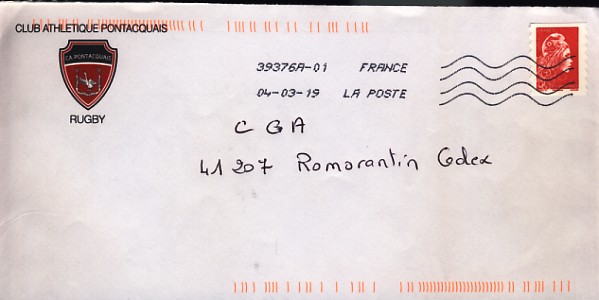 CLUB ATHLETIQUE PONTACQUAIS
CA PONTACQUAIS
RUGBY
39376A-01 FRANCE
04-03-19 LA POSTE
C G A
41207 Romorantin Cedex